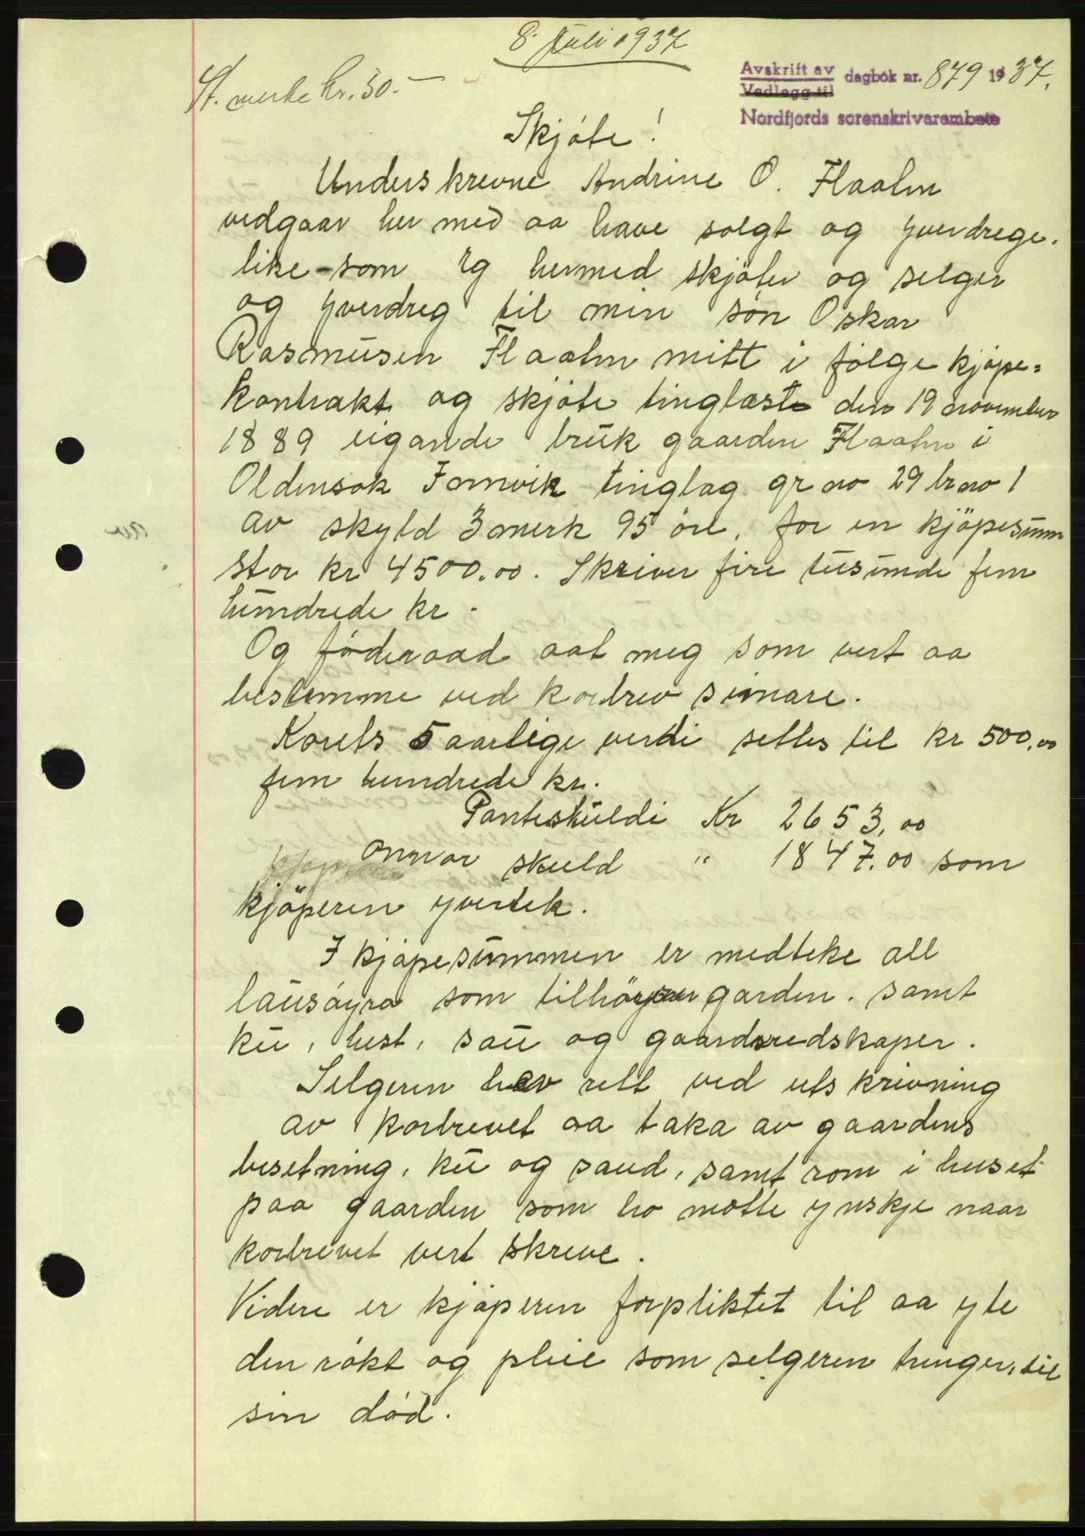 8. Juli 1937
St. merke kr. 30.-
Avskrift av
Vedlegg til
dagbok nr. 879 1937.
Nordfjords sorenskrivarembete
Skjöte!
Underskrevne Andrine O. Flaalm
vedgaar her med aa have solgt og yverdrege.
like-som Eg hermed skjöter og selger
og yverdreg til min sön Oskar
Rasmusen Flaalm mitt i fölge kjöpe=
kontrakt og skjöte tinglæst den 19 november
1889 eigande bruk gaarden Flaalm i
Oldensok Innvik tinglag gr no 29 br no 1
av skyld 3 merk 95 öre, for en kjöpesumm
stor kr 4500.00. Skriver fire tusunde fem
hundrede kr.
Og föderaad aat meg som vert aa
bestemme ved korbrev seinare.
Korets 5 aarlige verdi settes til kr 500.00
fem hundrede kr.
Panteskuldi Kr 2653,00
onnor skuld " 1847.00 som
kjöperen yvertek.
I kjöpesummen er medteke all
lausöyra som tilhöyrer garden. samt
ku, hest, sau og gaardsredskaper.
Selgeren hev rett ved utskrivning
av korbrevet aa taka av gaardens
besetning, ku og saud, samt rom i huset
paa gaarden som ho motte ynskje naar
korbrevet vert skreve.
Videre er kjöperen forpliktet til aa yte
den rökt og pleie som selgeren trenger, til
sin död.